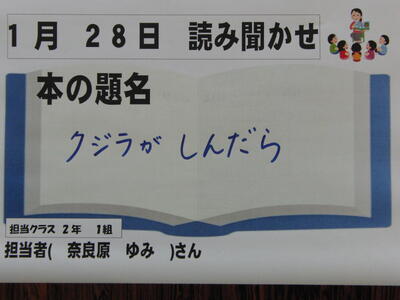 1月 28日 読み聞かせ
本の題名
クジラが しんだら
担当クラス 2年 1組
担当者( 奈良原 ゆみ )さん